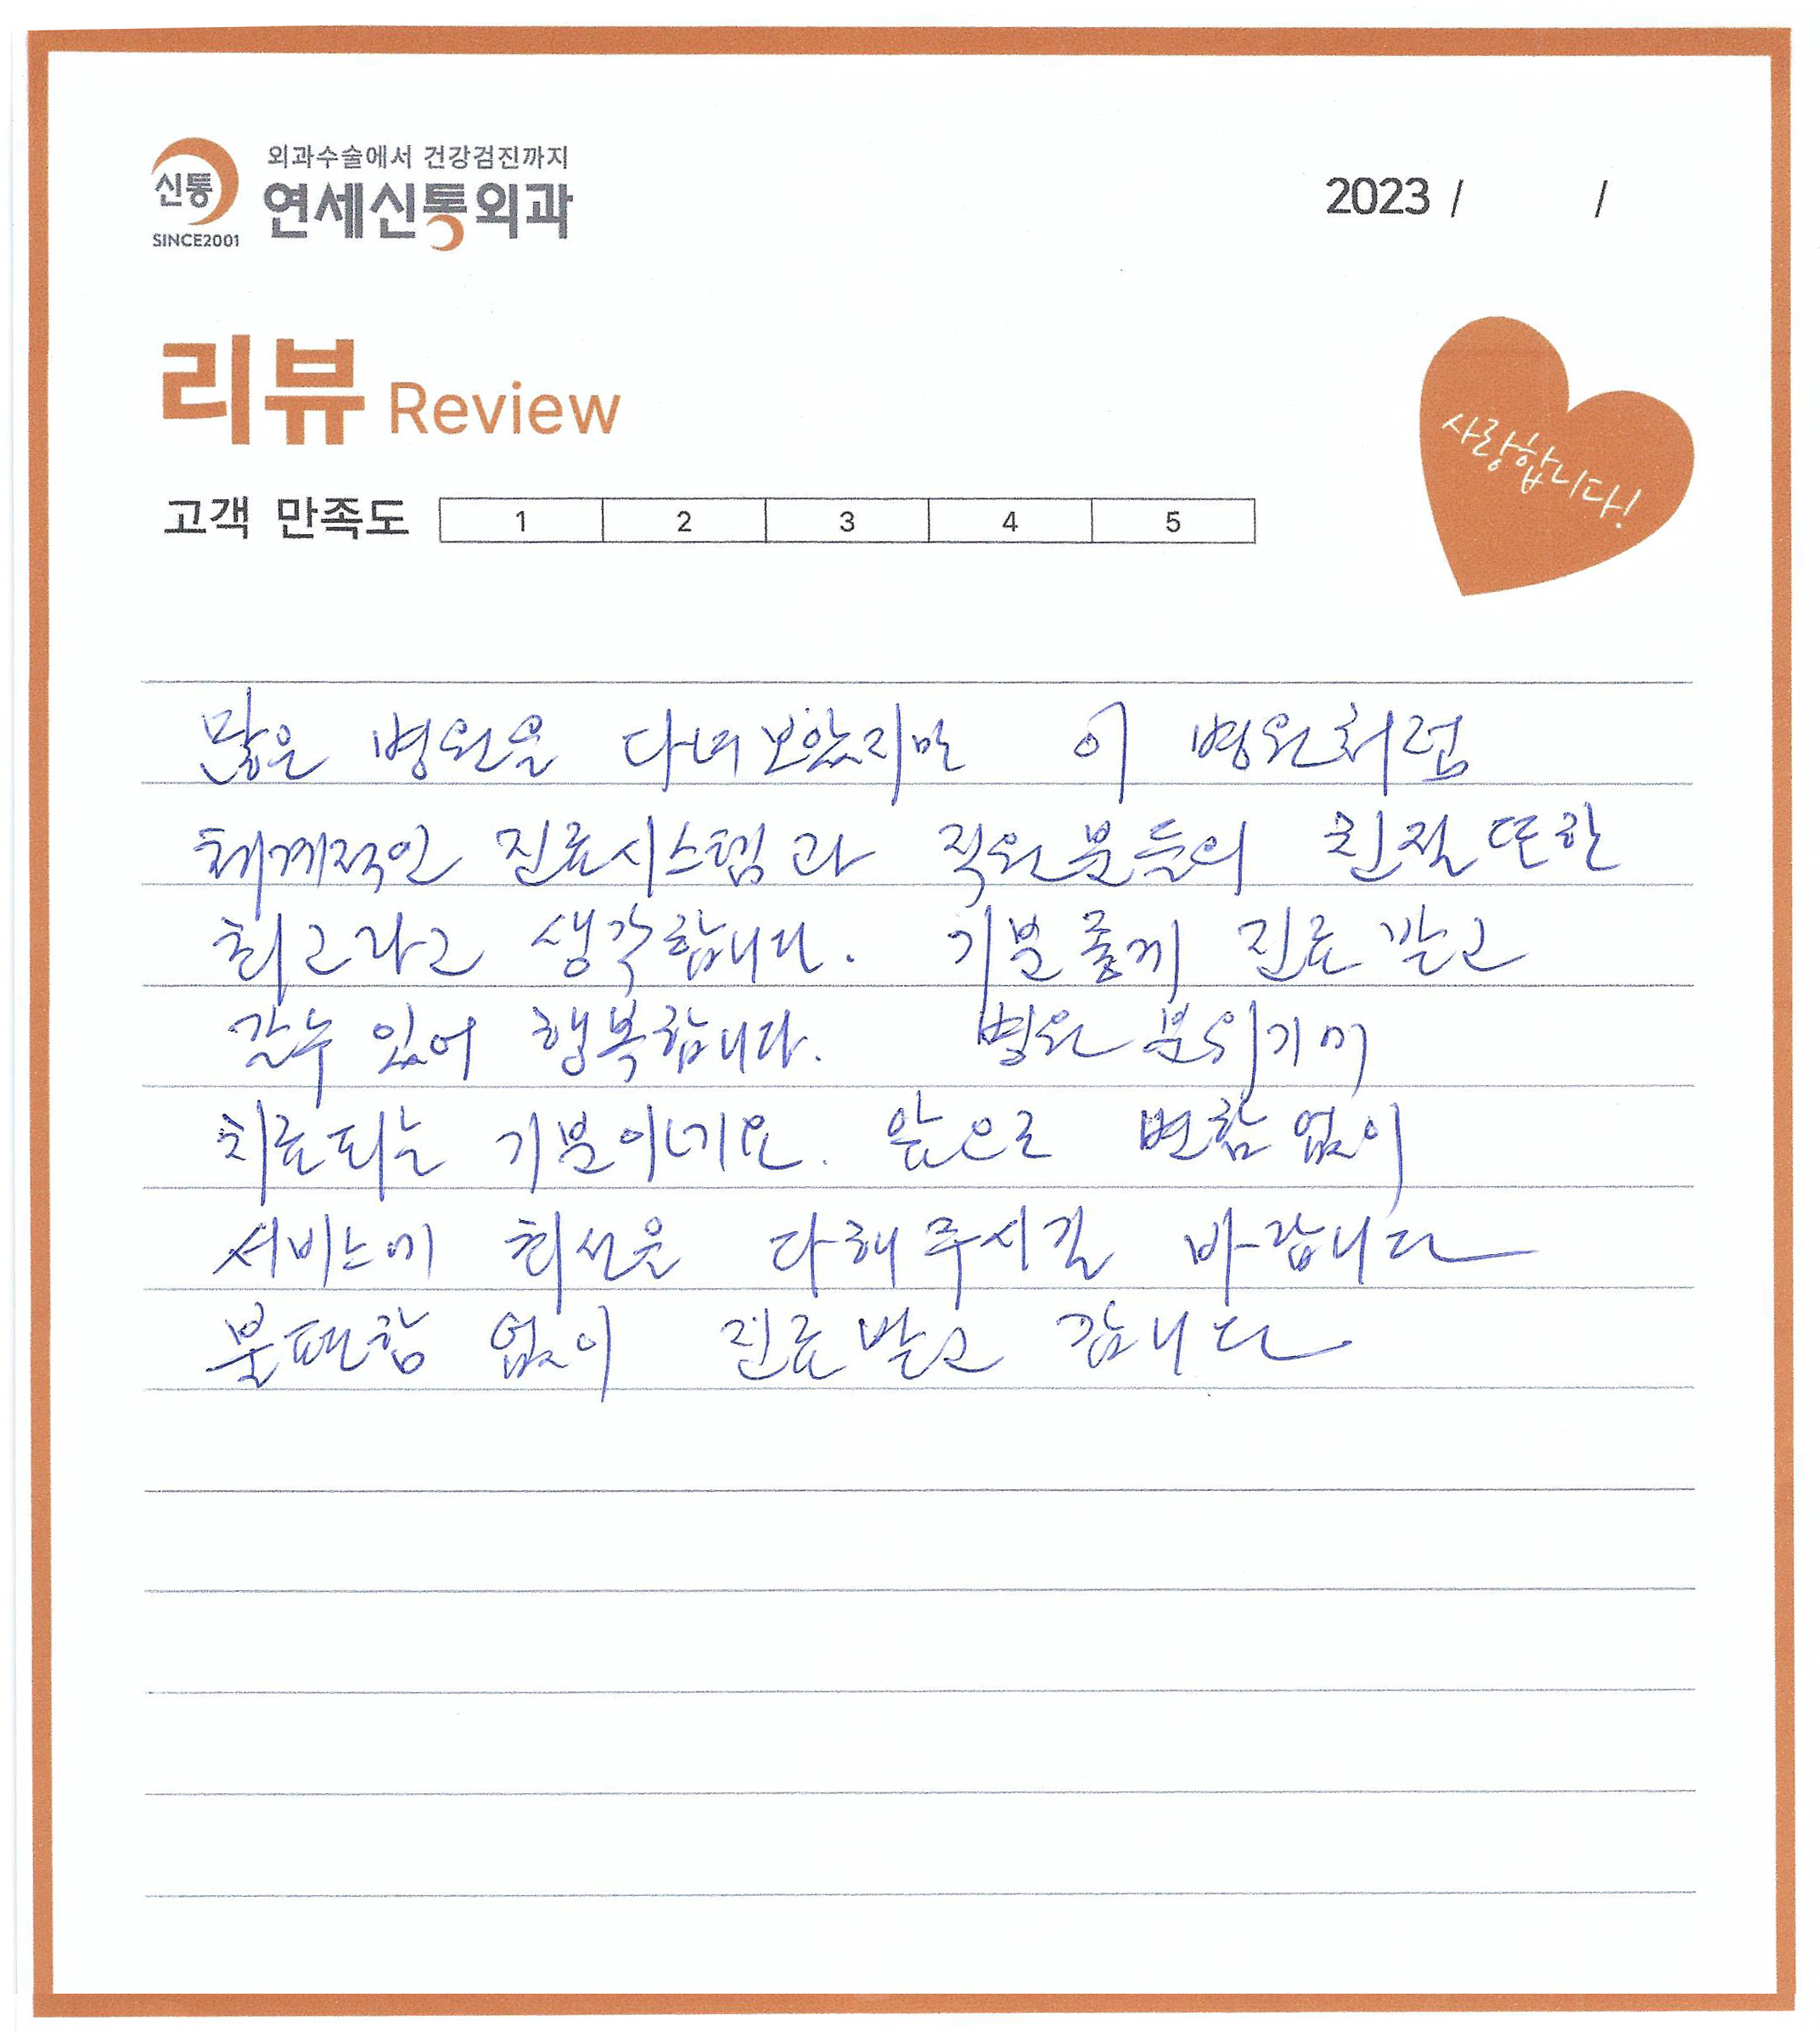 외과수술에서 건강검진까지
신통
연세신통외과
SINCE2001
2023 /      /
리뷰 Review
사랑합니다!
고객 만족도 1 2 3 4 5
많은 병원을 다녀보았지만 이 병원처럼
체계적인 진료시스템과 직원분들의 친절 또한
최고라고 생각합니다. 기분 좋게 진료 받고
갈수 있어 행복합니다. 병원 분위기에
치료되는 기분이네요. 앞으로 변함없이
서비스에 최선을 다해주시길 바랍니다
불편함 없이 진료받고 갑니다